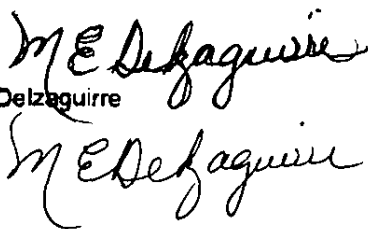 M E Delzaguirre
Delzaguirre
M E Delzaguirre